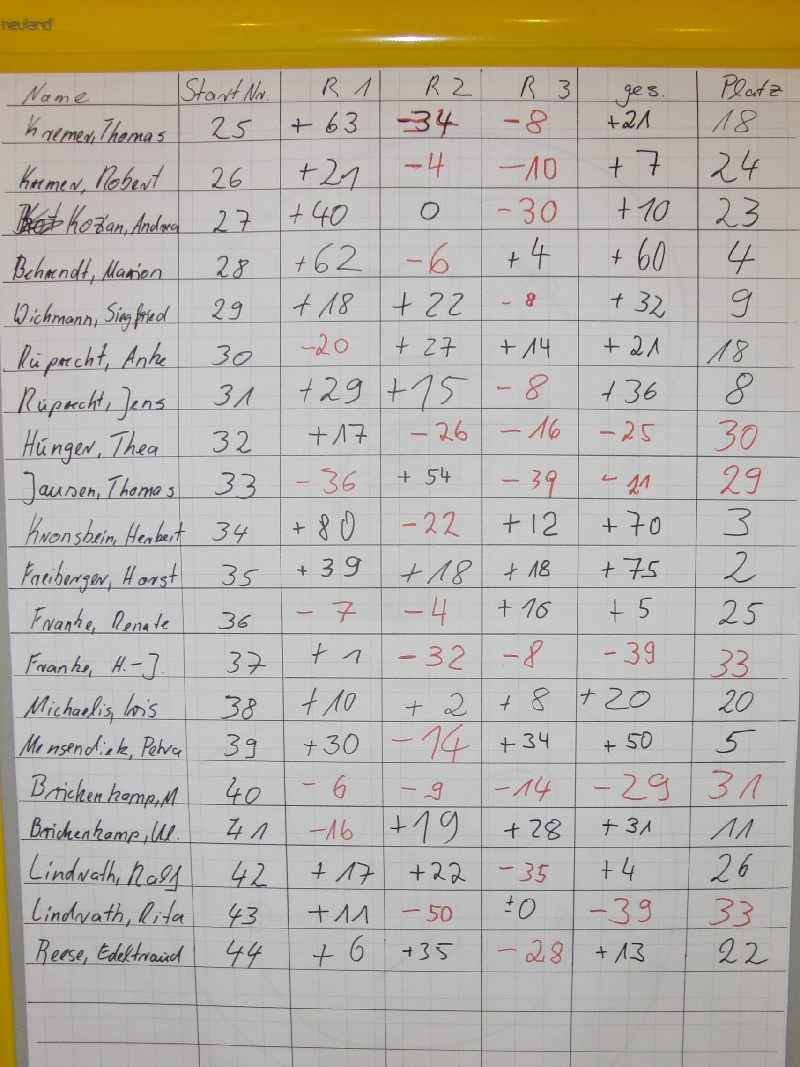 neuland
Name Start Nr. R 1 R 2 R 3 ges. Platz
Kremer, Thomas 25 + 63 -34 -8 +21 18
Kremer, Robert 26 +21 -4 -10 + 7 24
Kozian, Andrea 27 +40 0 -30 +10 23
Behrendt, Marion 28 +62 -6 +4 + 60 4
Wichmann, Siegfried 29 +18 + 22 -8 + 32 9
Ruprecht, Anke 30 -20 + 27 +14 + 21 18
Ruprecht, Jens 31 +29 +15 -8 +36 8
Hünger, Thea 32 +17 -26 -16 -25 30
Jansen, Thomas 33 -36 + 54 -39 -21 29
Kronsbein, Herbert 34 + 80 -22 +12 +70 3
Freiberger, Horst 35 + 39 +18 + 18 + 75 2
Franke, Renate 36 - 7 -4 +16 + 5 25
Franke, H.-J. 37 + 1 -32 -8 -39 33
Michaelis, Lois 38 +10 + 2 + 8 +20 20
Mensendiek, Petra 39 +30 -14 +34 +50 5
Brickenkamp, M 40 -6 -9 -14 -29 31
Brickenkamp, Ul. 41 -16 +19 +28 +31 11
Lindrath, Ralf 42 +17 +22 -35 +4 26
Lindrath, Rita 43 +11 -50 ±0 -39 33
Reese, Edeltraud 44 + 6 +35 -28 +13 22